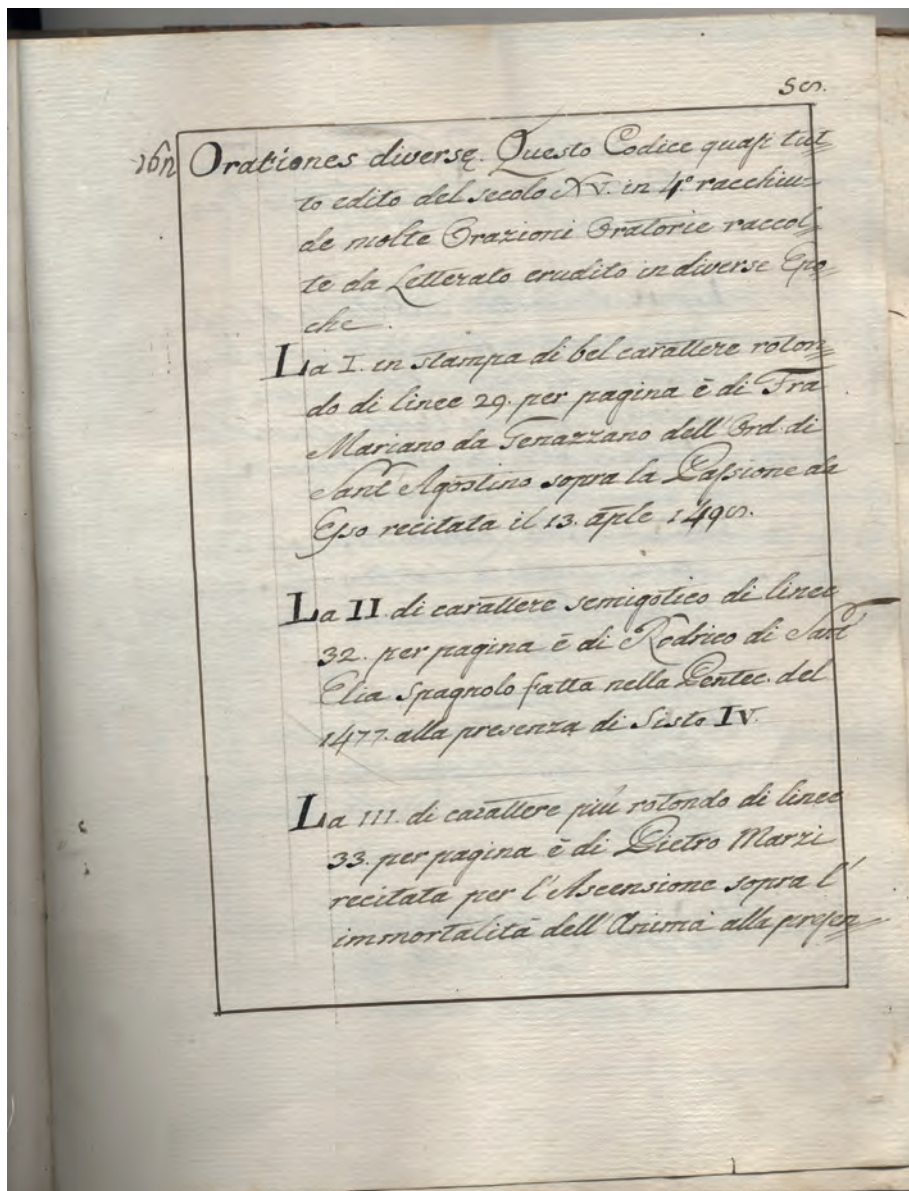 Orationes diversę. Questo Codice quasi tut=
to edito del secolo XV. in 4° racchiu=
de molte Orazioni Oratorie raccol=
te da Letterato erudito in diverse Epo=
che.
La I. in stampa di bel carattere roton=
do di linee 29. per pagina è di Fra
Mariano da Genazzano dell' Ord. di
Sant' Agostino sopra la Passione da
Esso recitata il 13. aple
La II. di carattere semigotico di linee
32. per pagina è di Rodrico di Sant'
Elia Spagnolo fatta nella Pentec. del
1477. alla presenza di Sisto IV.
La III. di carattere più rotondo di linee
33. per pagina è di Pietro Marzi
recitata per l' Ascensione sopra l'
immortalità dell' Anima alla presen=